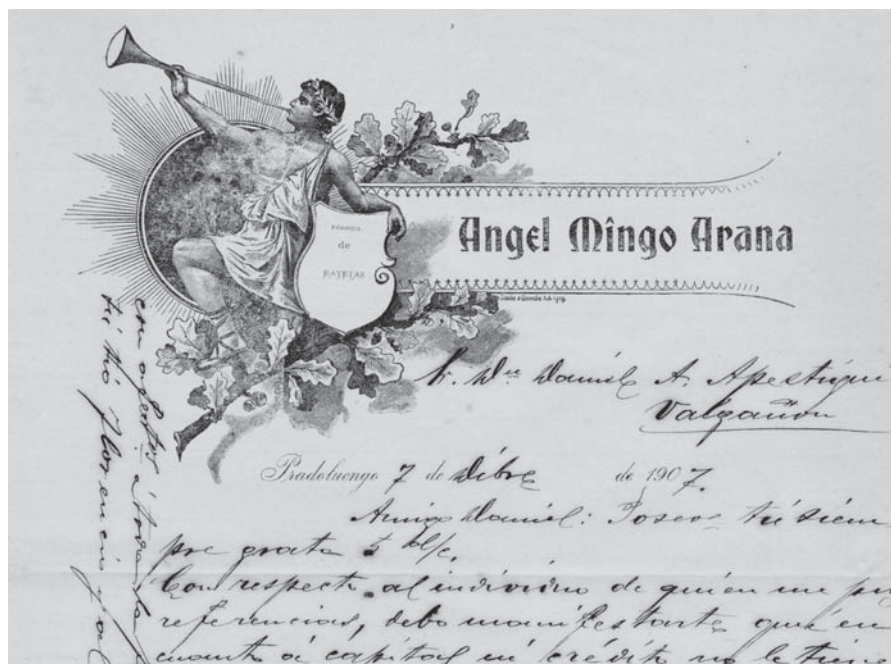 FÁBRICA
de
BAYETAS
Angel Mingo Arana
Sr. Dn Daniel A. Apestigui
Valgañon
Pradoluengo 7 de Dibre de 1907.
Amigo Daniel: Poseo tu siem
pre grata 5 del/c.
Con respecto al individuo de quien me pi
referencias, debo manifestarte que en
cuanto á capital ni crédito no le tien
con afectos á toda la
tu tio Florencio y al